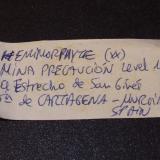 HEMIMORPHYTE (XX)
MINA PRECAUCIÓN Level 1
Estrecho de San Ginés
de CARTAGENA - MURCIA
SPAIN